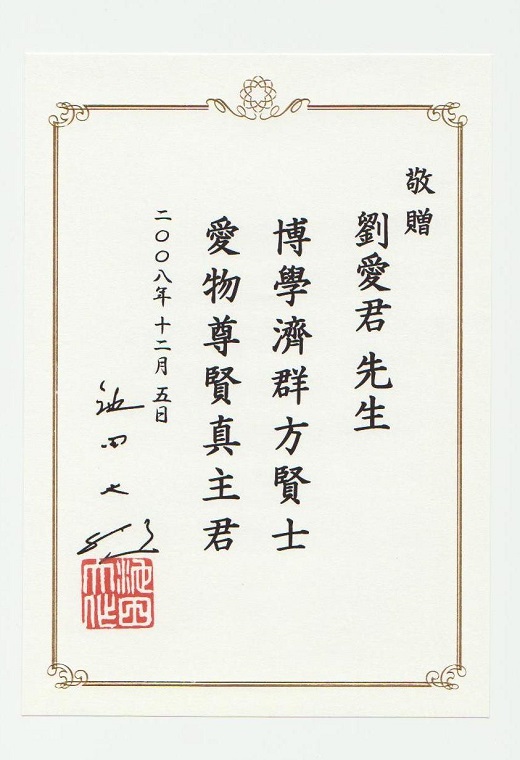 敬贈
劉愛君 先生
博學濟群方賢士
愛物尊賢真主君
二〇〇八年十二月五日
池田大作
池田大作